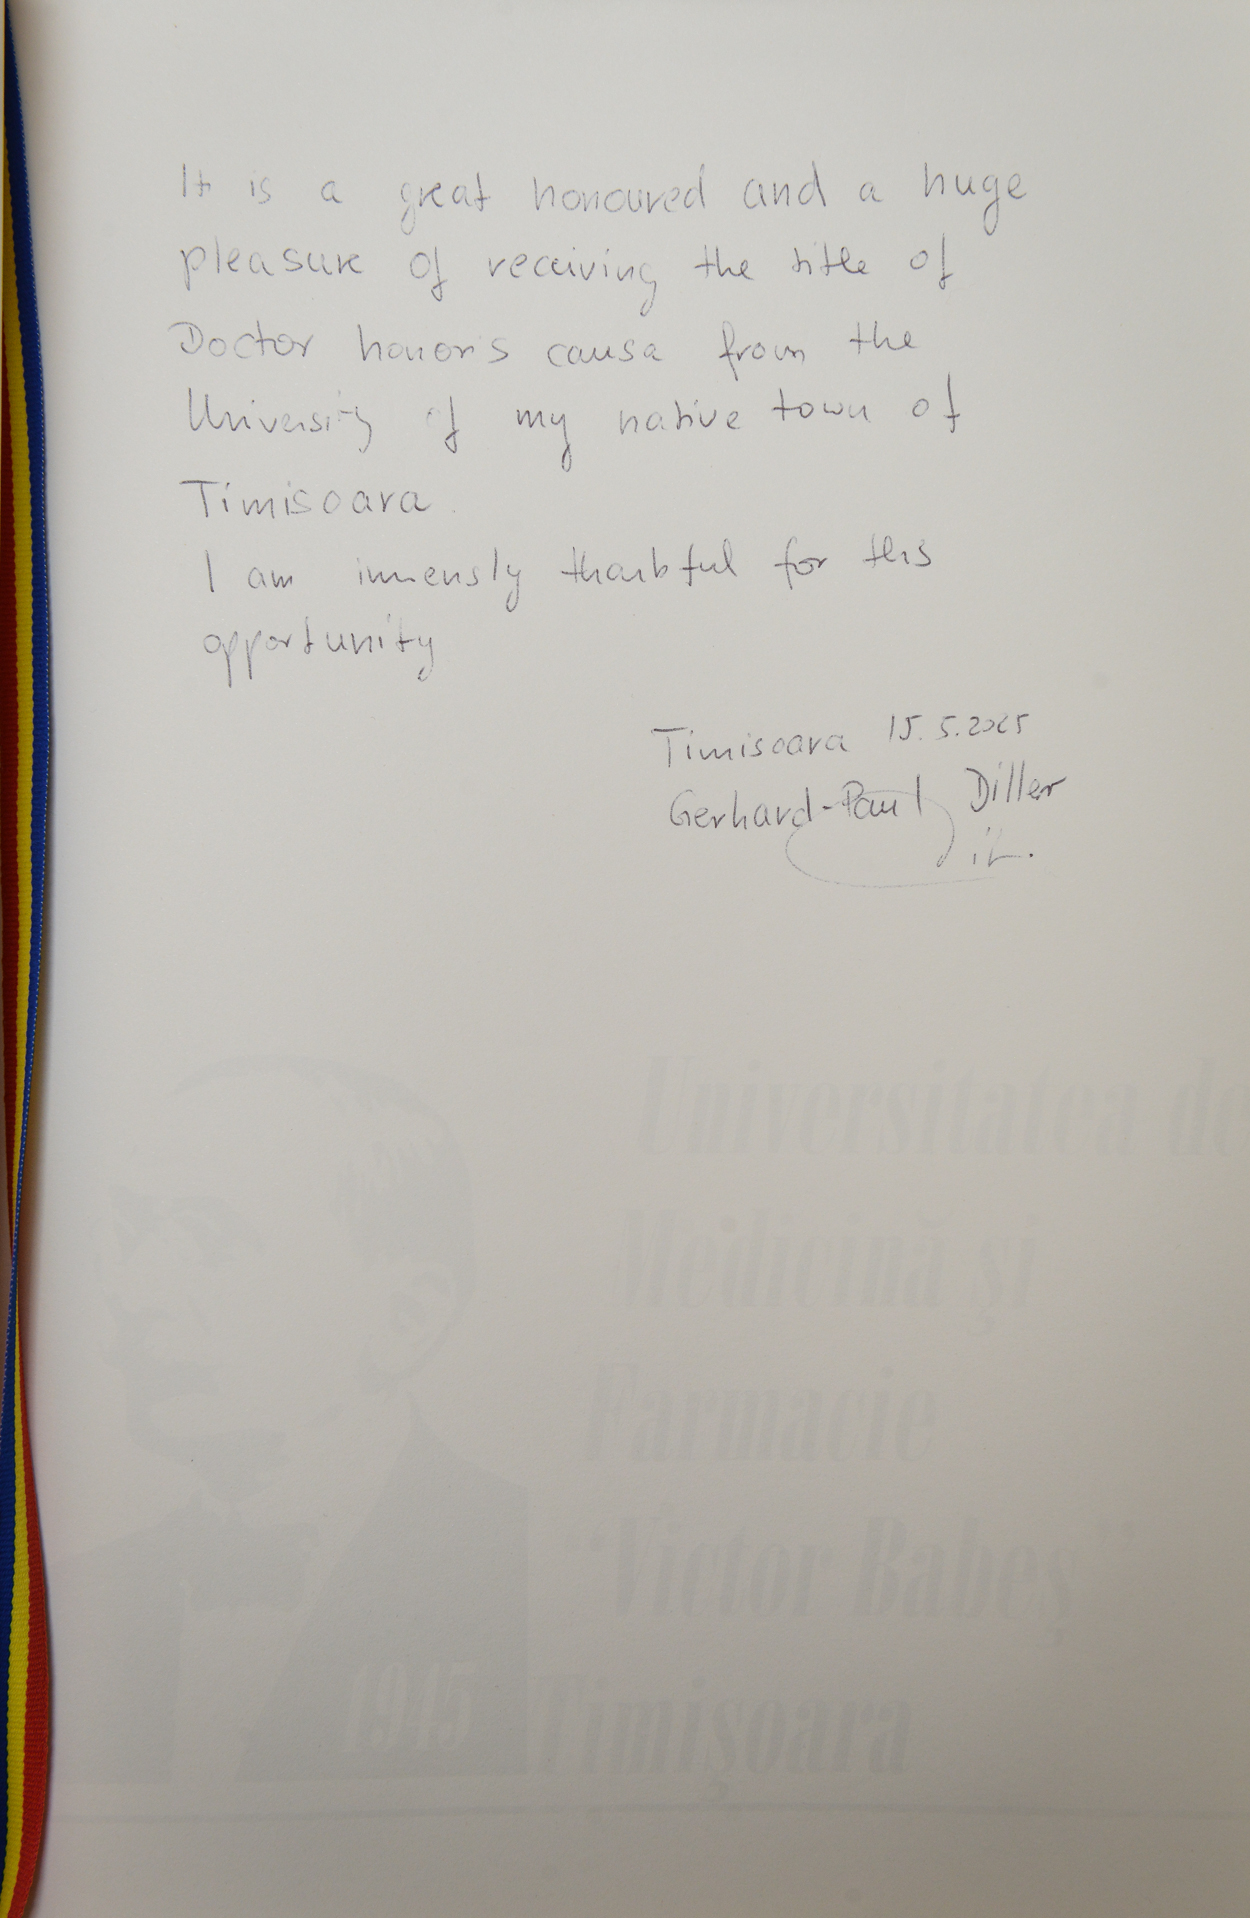 It is a great honoured and a huge
pleasure of receiving the title of
Doctor honoris causa from the
University of my native town of
Timisoara.
I am immensly thankful for this
opportunity
Timisoara 15.5.2025
Gerhard-Paul Diller
Universitatea de
Medicină şi
Farmacie
“Victor Babeş”
1945 Timişoara